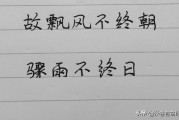 故飘风不终朝
骤雨不终日